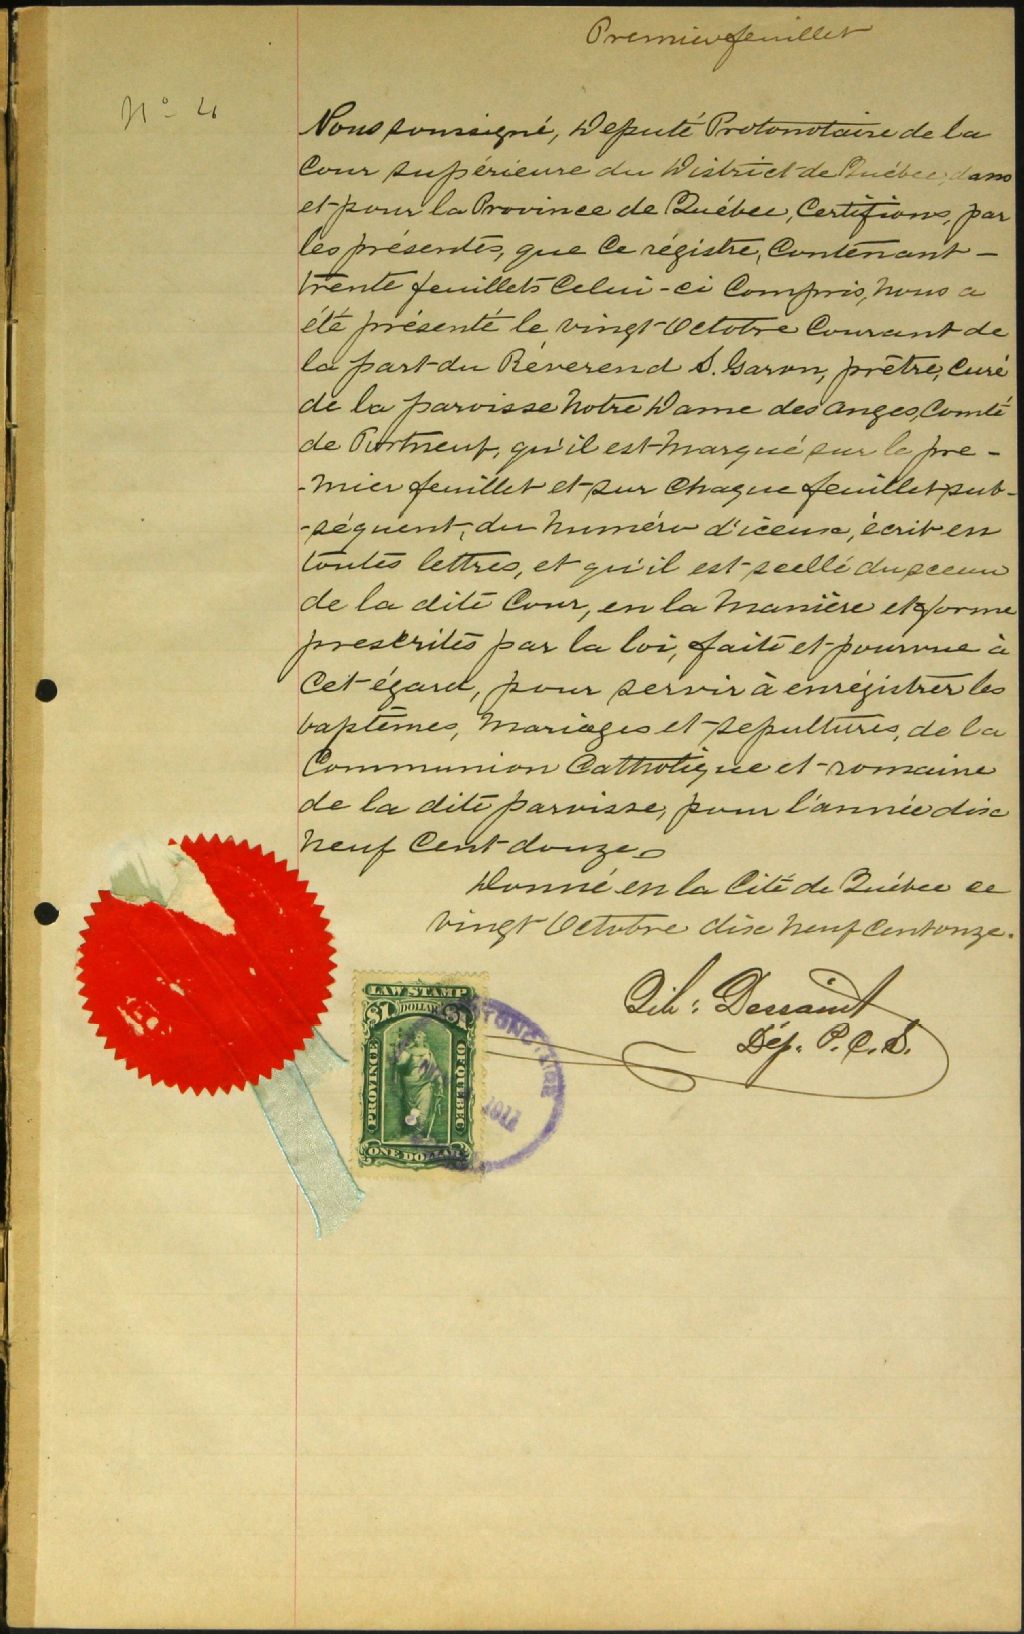 Premier feuillet
No 4
Nous soussigné, Député Protonotaire de la
Cour supérieure du District de Québec, dans
et pour la Province de Québec, Certifions, par
les présentes, que Ce régistre, Contenant -
trente feuillets Celui-ci Compris, nous a
été présenté le vingt Octobre Courant de
la part du Réverend S. Garon, prêtre, Curé
de la paroisse Notre Dame des Anges, Comté
de Portneuf, qu'il est marqué sur le pre-
-mier feuillet et sur Chaque feuillet sub-
-séquent, du numéro d'iceux, écrit en
toutes lettres, et qu'il est scellé du sceau
de la dite Cour, en la manière et forme
prescrites par la loi, faite et pourvue à
Cet égard, pour servir à enrégistrer les
baptêmes, Mariages et sépultures, de la
Communion Catholique et romaine
de la dite paroisse, pour l'année dix
neuf Cent douze.
Donné en la Cité de Québec ce
vingt Octobre dix neuf Cent onze.
Dessaint
Dép. P. C. S.
LAW STAMP
$1 DOLLAR $1
PROVINCE
OF QUEBEC
ONE DOLLAR
1911